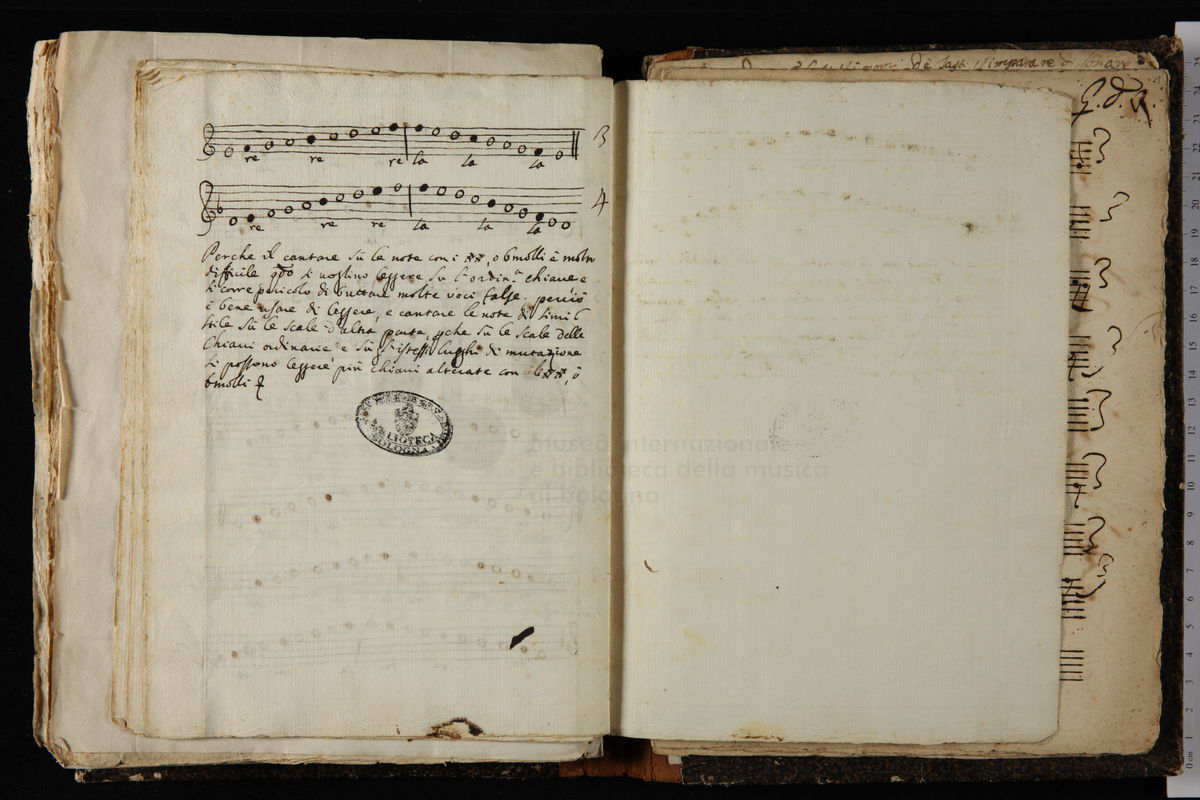 3
re re re la la la
4
re re re la la la
Perche il cantare sù le note con i ##, o bmolli è molto
difficile qdo si voglino leggere su l'ordin.a chiave e
si corre pericolo di buttare molte voci false. perciò
è bene usare di leggere, e cantare le note di simil
stile sù le scale d'altra parte, pche sù le scale delle
Chiavi ordinarie e sù gl'istessi luoghi di mutazione
si possono leggere più chiavi alterate con li ##, ò
bmolli
BIBLIOTECA
BOLOGNA
museo internazionale
e biblioteca della musica
di bologna
imparare di sonare